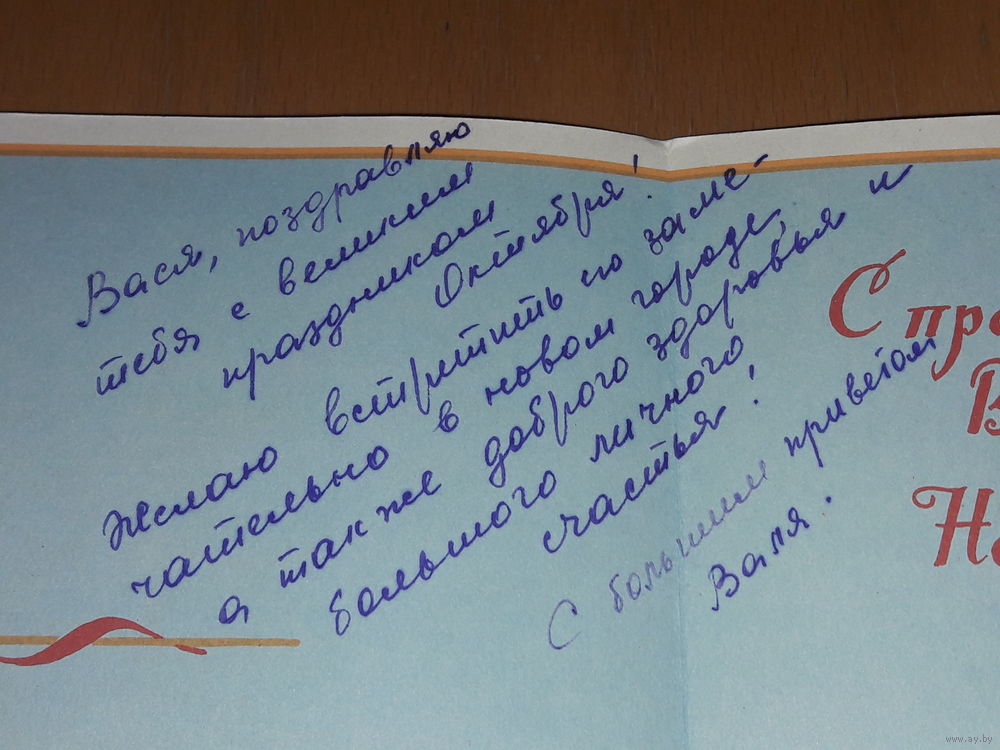 Вася, поздравляю
тебя с великим
праздником
Октября!
Желаю встретить по заме-
чательно в новом городе,
а также доброго здоровья и
большого личного
счастья!
С большим приветом
Валя.
С пр
В
Н
www.ay.by